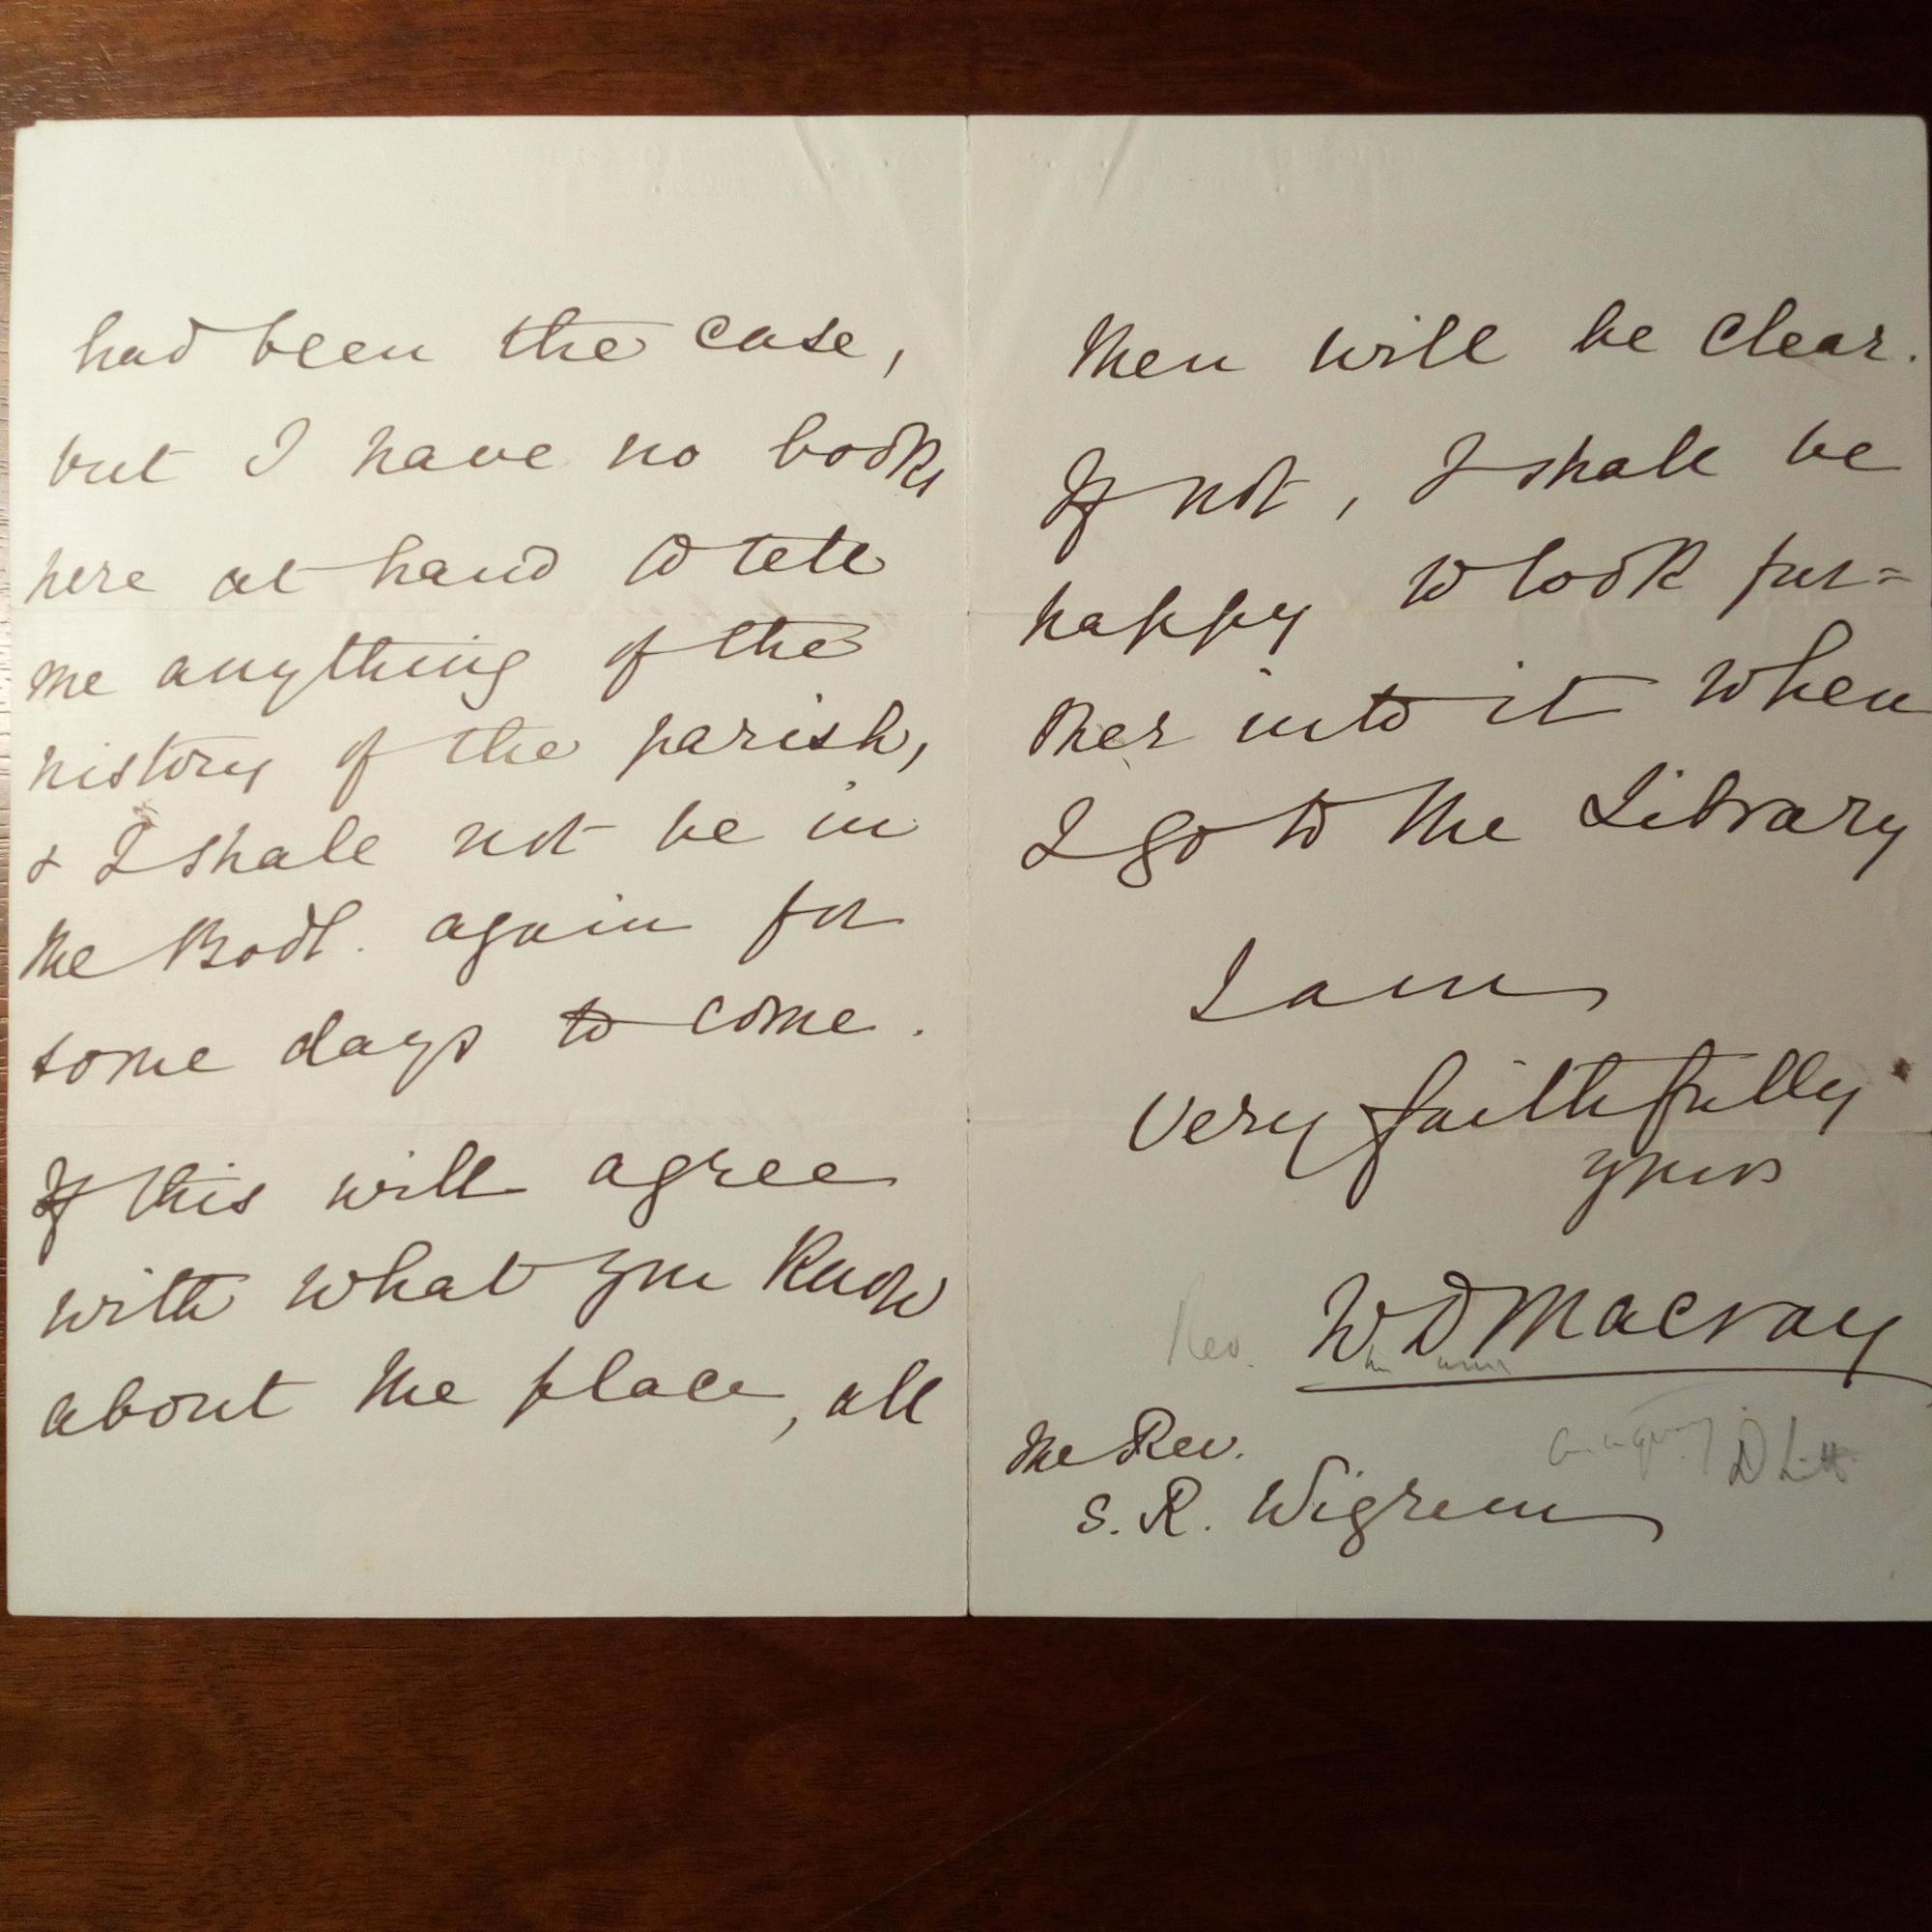 had been the case,
but I have no books
here at hand to tell
me anything of the
history of the parish,
& I shall not be in
the Bodl. again for
some days to come.
If this will agree
with what you know
about the place, all
then will be clear.
If not, I shall be
happy to look fur=
ther into it when
I go to the Library
I am
very faithfully
yours
Rev. W D Macray
D Litt
The Rev.
S. R. Wigram